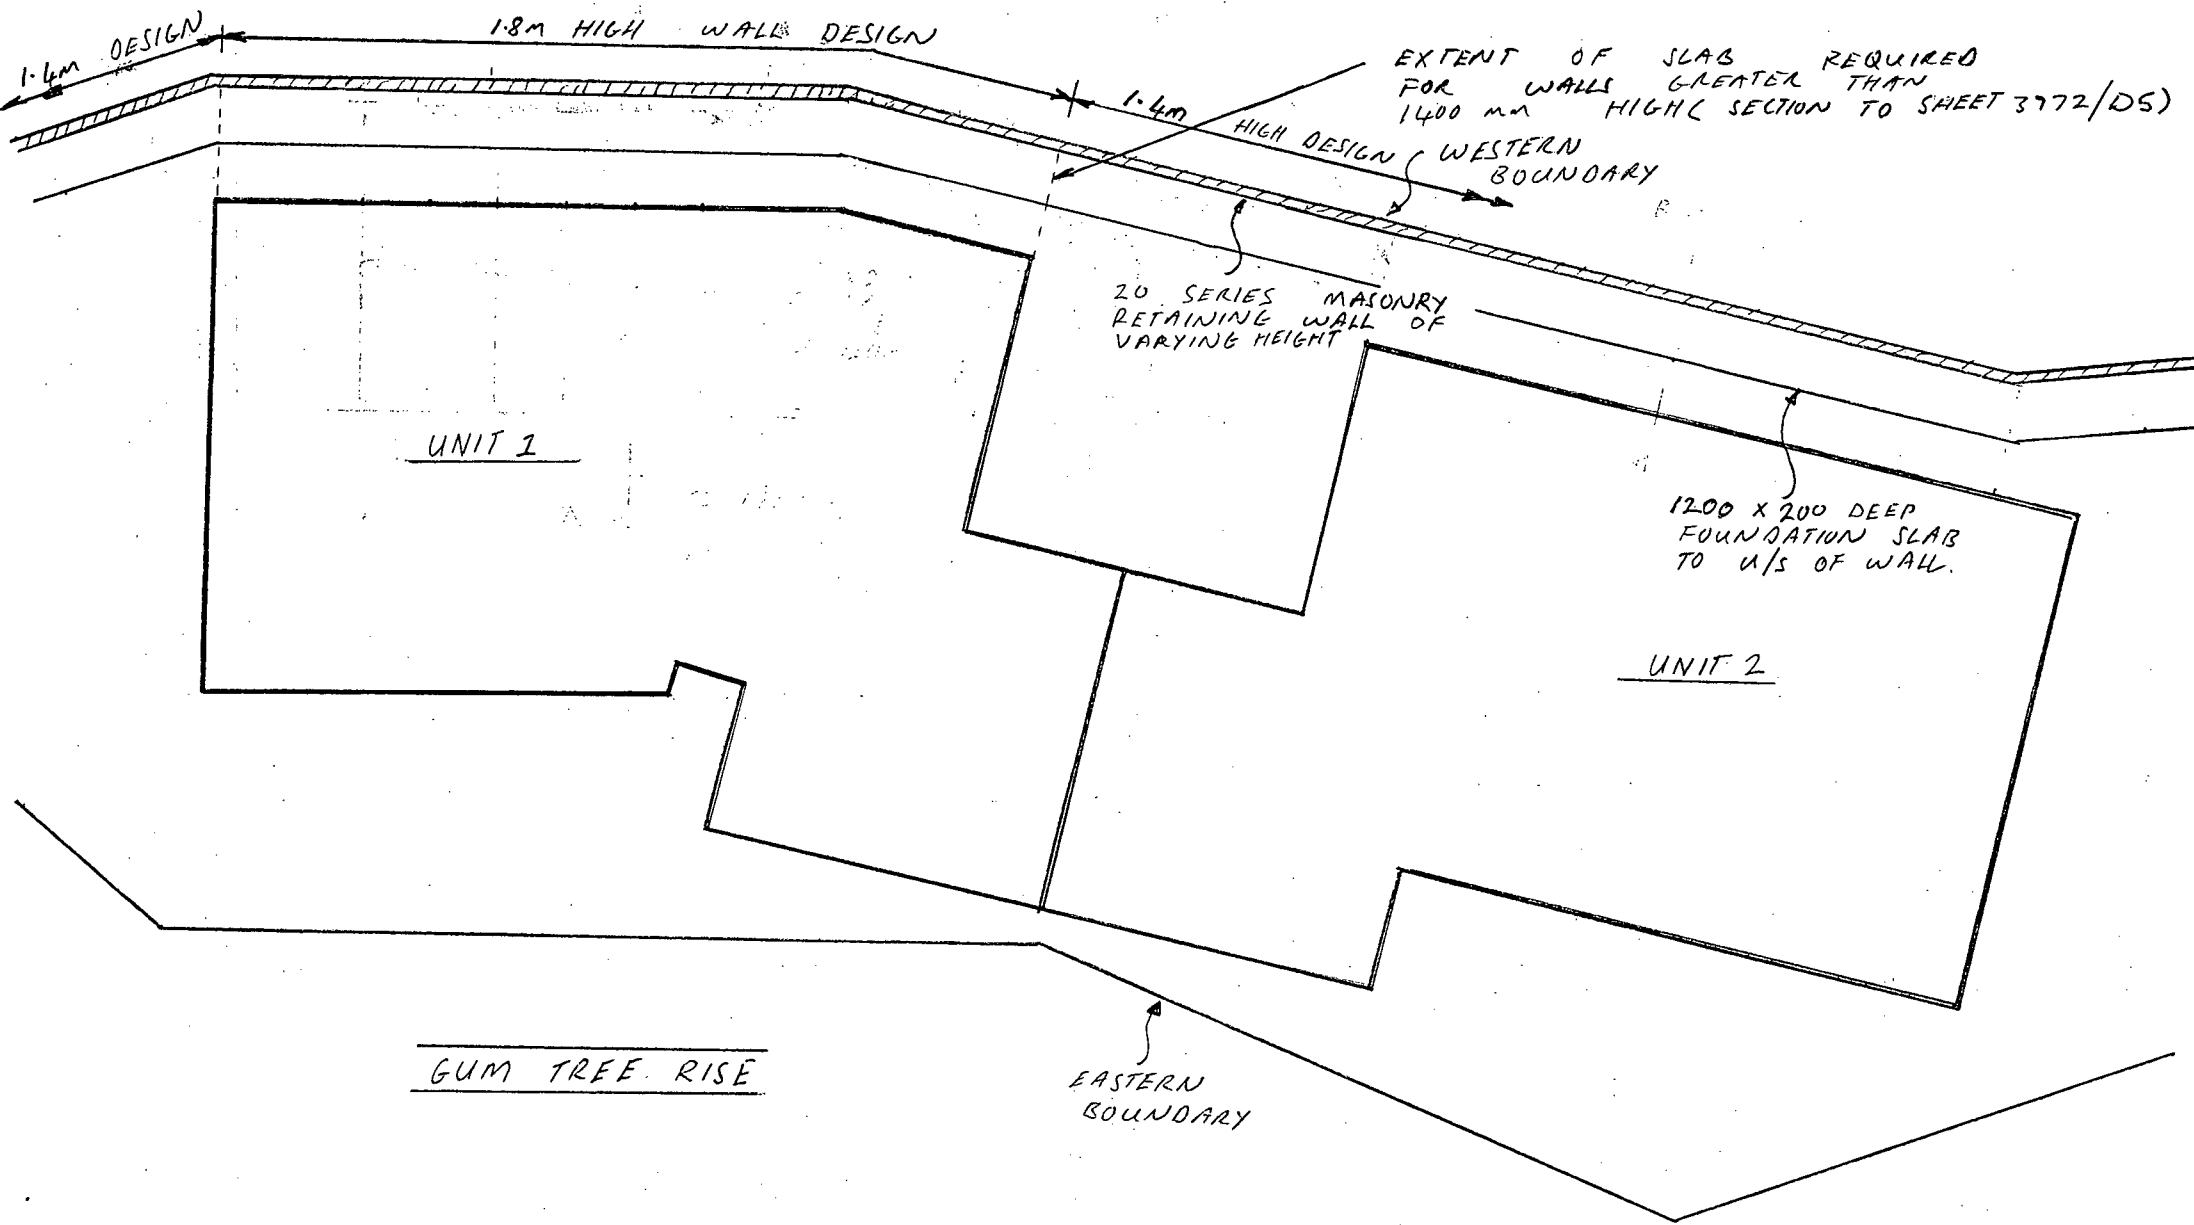 1.4m DESIGN
1.8m HIGH WALL DESIGN
1.4m HIGH DESIGN
EXTENT OF SLAB REQUIRED
FOR WALLS GREATER THAN
1400 mm HIGH( SECTION TO SHEET 3972/D5)
WESTERN
BOUNDARY
20 SERIES MASONRY
RETAINING WALL OF
VARYING HEIGHT
UNIT 1
1200 X 200 DEEP
FOUNDATION SLAB
TO U/S OF WALL.
UNIT 2
GUM TREE RISE
EASTERN
BOUNDARY